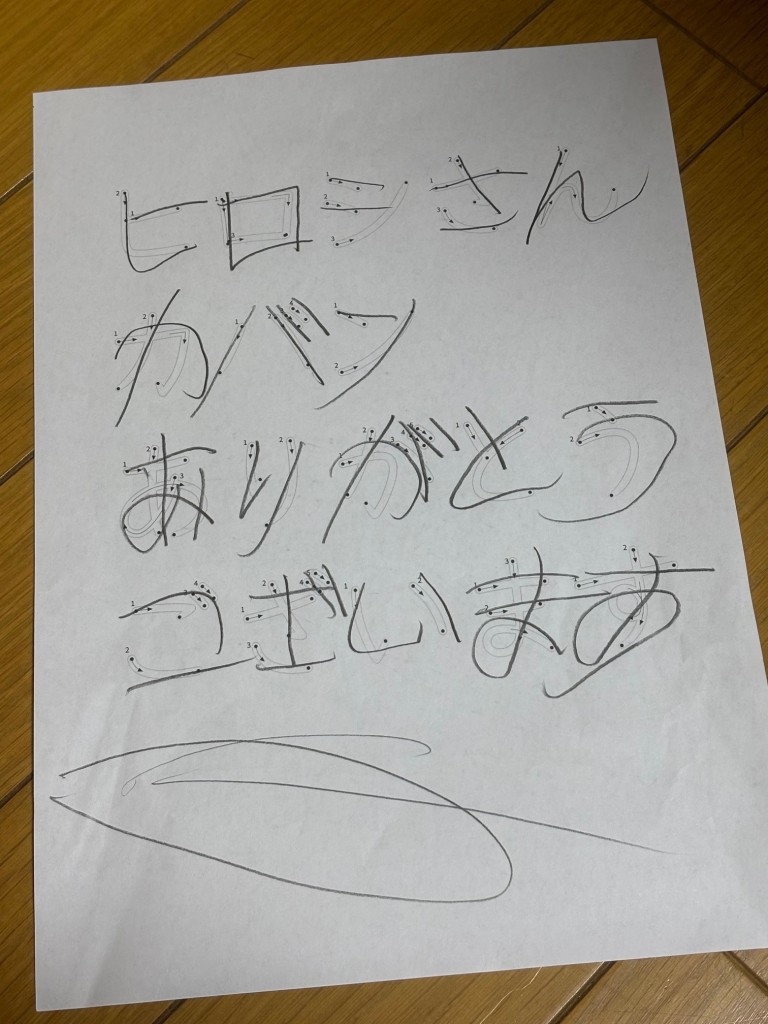 ヒロシさん
カバン
ありがとう
ございます